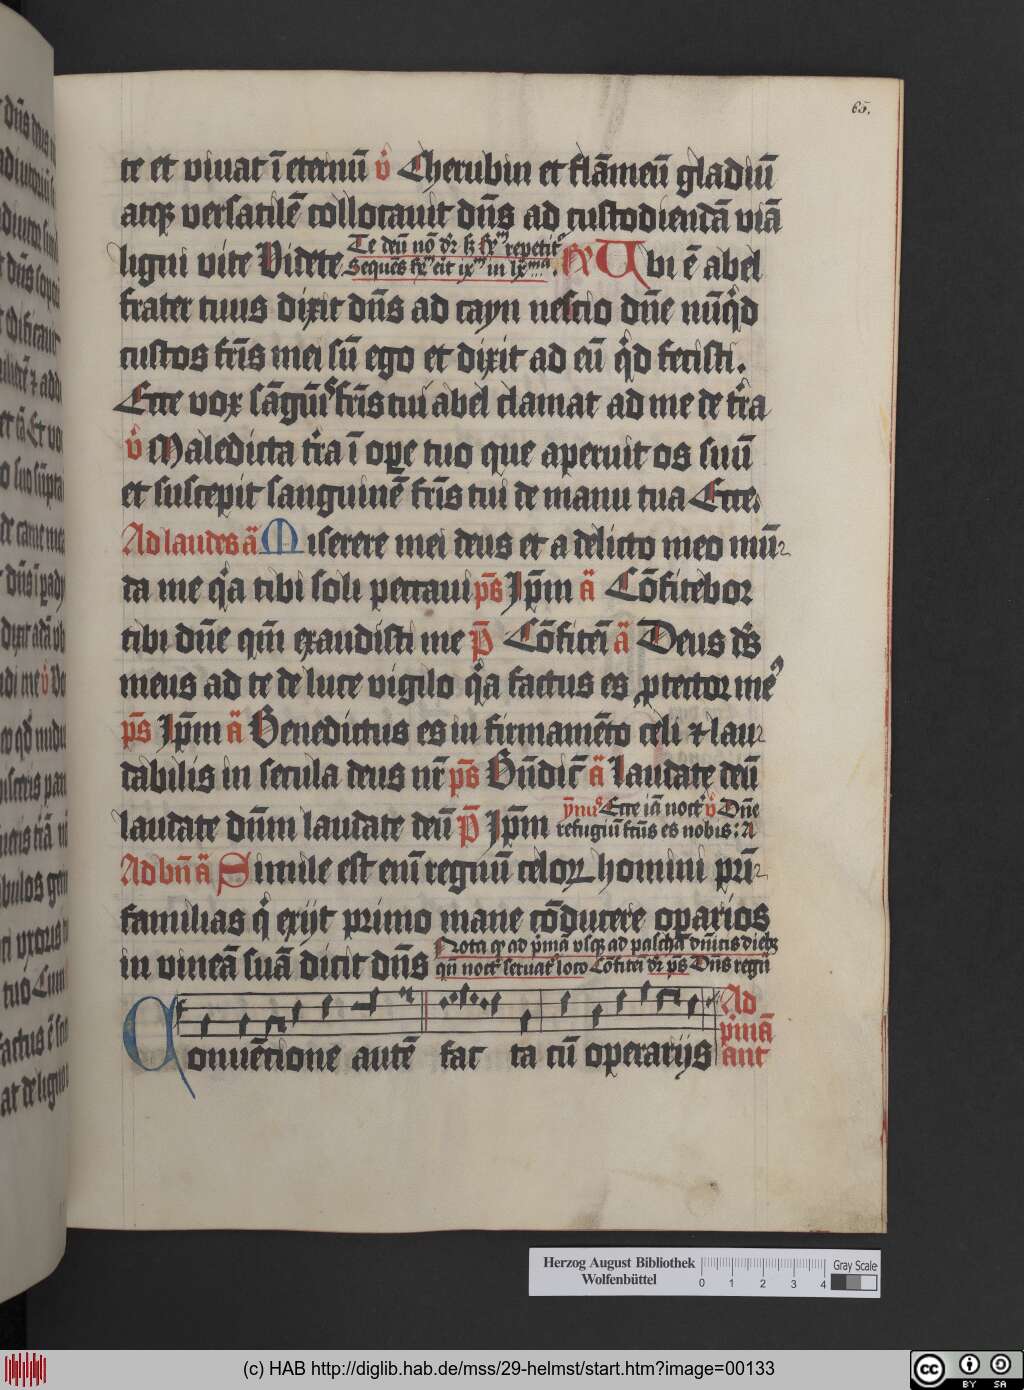 65.
te et viuat ī eternū v̊ Cherubin et flāmeū gladiū
atqꝫ versatilē collocauit dn̄s ad custodiendā viā
ligni vite Videte Te deū nō dr̄ sꝫ rm̄ repetit᷑
Sequēs rm̄ erit ixm̄ in lxma. Rm̄ Vbi ē abel
frater tuus dixit dn̄s ad cayn nescio dn̄e nūq̊d
custos fr̄is mei sū ego et dixit ad eū q̊d fecisti.
Ecce vox sāgūīs fr̄is tui abel clamat ad me de tr̄a
v̊ Maledicta tr̄a ī oꝑe tuo que aperuit os suū
et suscepit sanguinē fr̄is tui de manu tua Ecce.
Ad laudes ā Miserere mei deus et a delicto meo mū-
da me qͣa tibi soli peccaui ps̄ Ip̄m ā Cōfitebor
tibi dn̄e qm̄ exaudisti me p̄ Cōfitēi ā Deus ds̄
meus ad te de luce vigilo qͣa factus es ꝓtector me᷒
ps̄ Ip̄m ā Benedictus es in firmamēto celi ⁊ lau-
dabilis in secula deus nr̄ ps̄ Bn̄dic̄ ā Laudate deū
laudate dn̄m laudate deū p̄ Ip̄m ȳnus Ecce iā noct᷑ v̊ Dn̄e
refugiū fc̄us es nobis: A
Ad bn̄ ā Simile est enī regnū celoꝝ homini pr̄i-
familias qͥ exijt primo mane cōducere oꝑarios
in vineā suā dicit dn̄s Nota qꝫ ad p̄mā vsqꝫ ad pascha dn̄icis diebꝫ
qn̄ noct᷑ seruat᷑ loco Cōfitēi dr̄ ps̄ Dn̄s regū
Conuētione autē fac ta cū operarijs Ad
p̄mā
ant
Herzog August Bibliothek
Wolfenbüttel
0 1 2 3 4
Gray Scale
(c) HAB http://diglib.hab.de/mss/29-helmst/start.htm?image=00133
cc BY SA